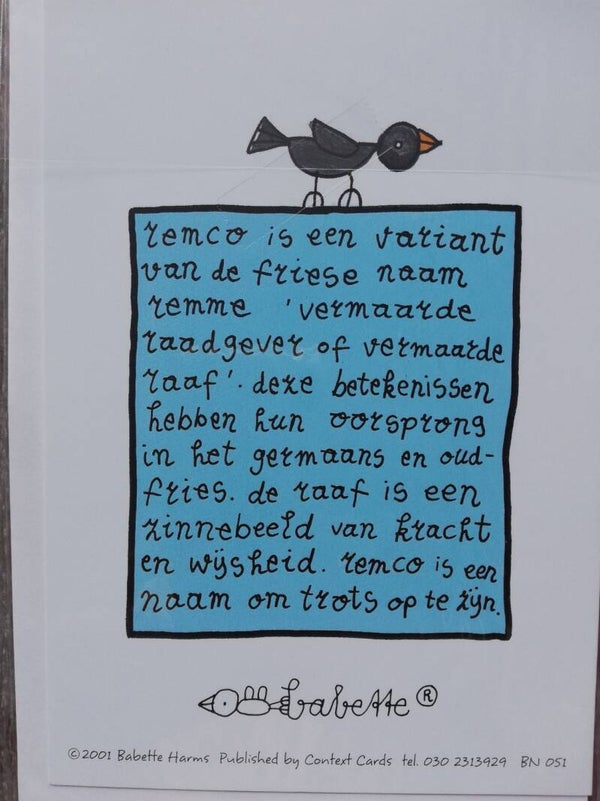 remco is een variant
van de friese naam
remme 'vermaarde
raadgever of vermaarde
raaf'. deze betekenissen
hebben hun oorsprong
in het germaans en oud-
fries. de raaf is een
zinnebeeld van kracht
en wijsheid. remco is een
naam om trots op te zijn.
babette ®
©2001 Babette Harms Published by Context Cards tel. 030 2313929 BN 051